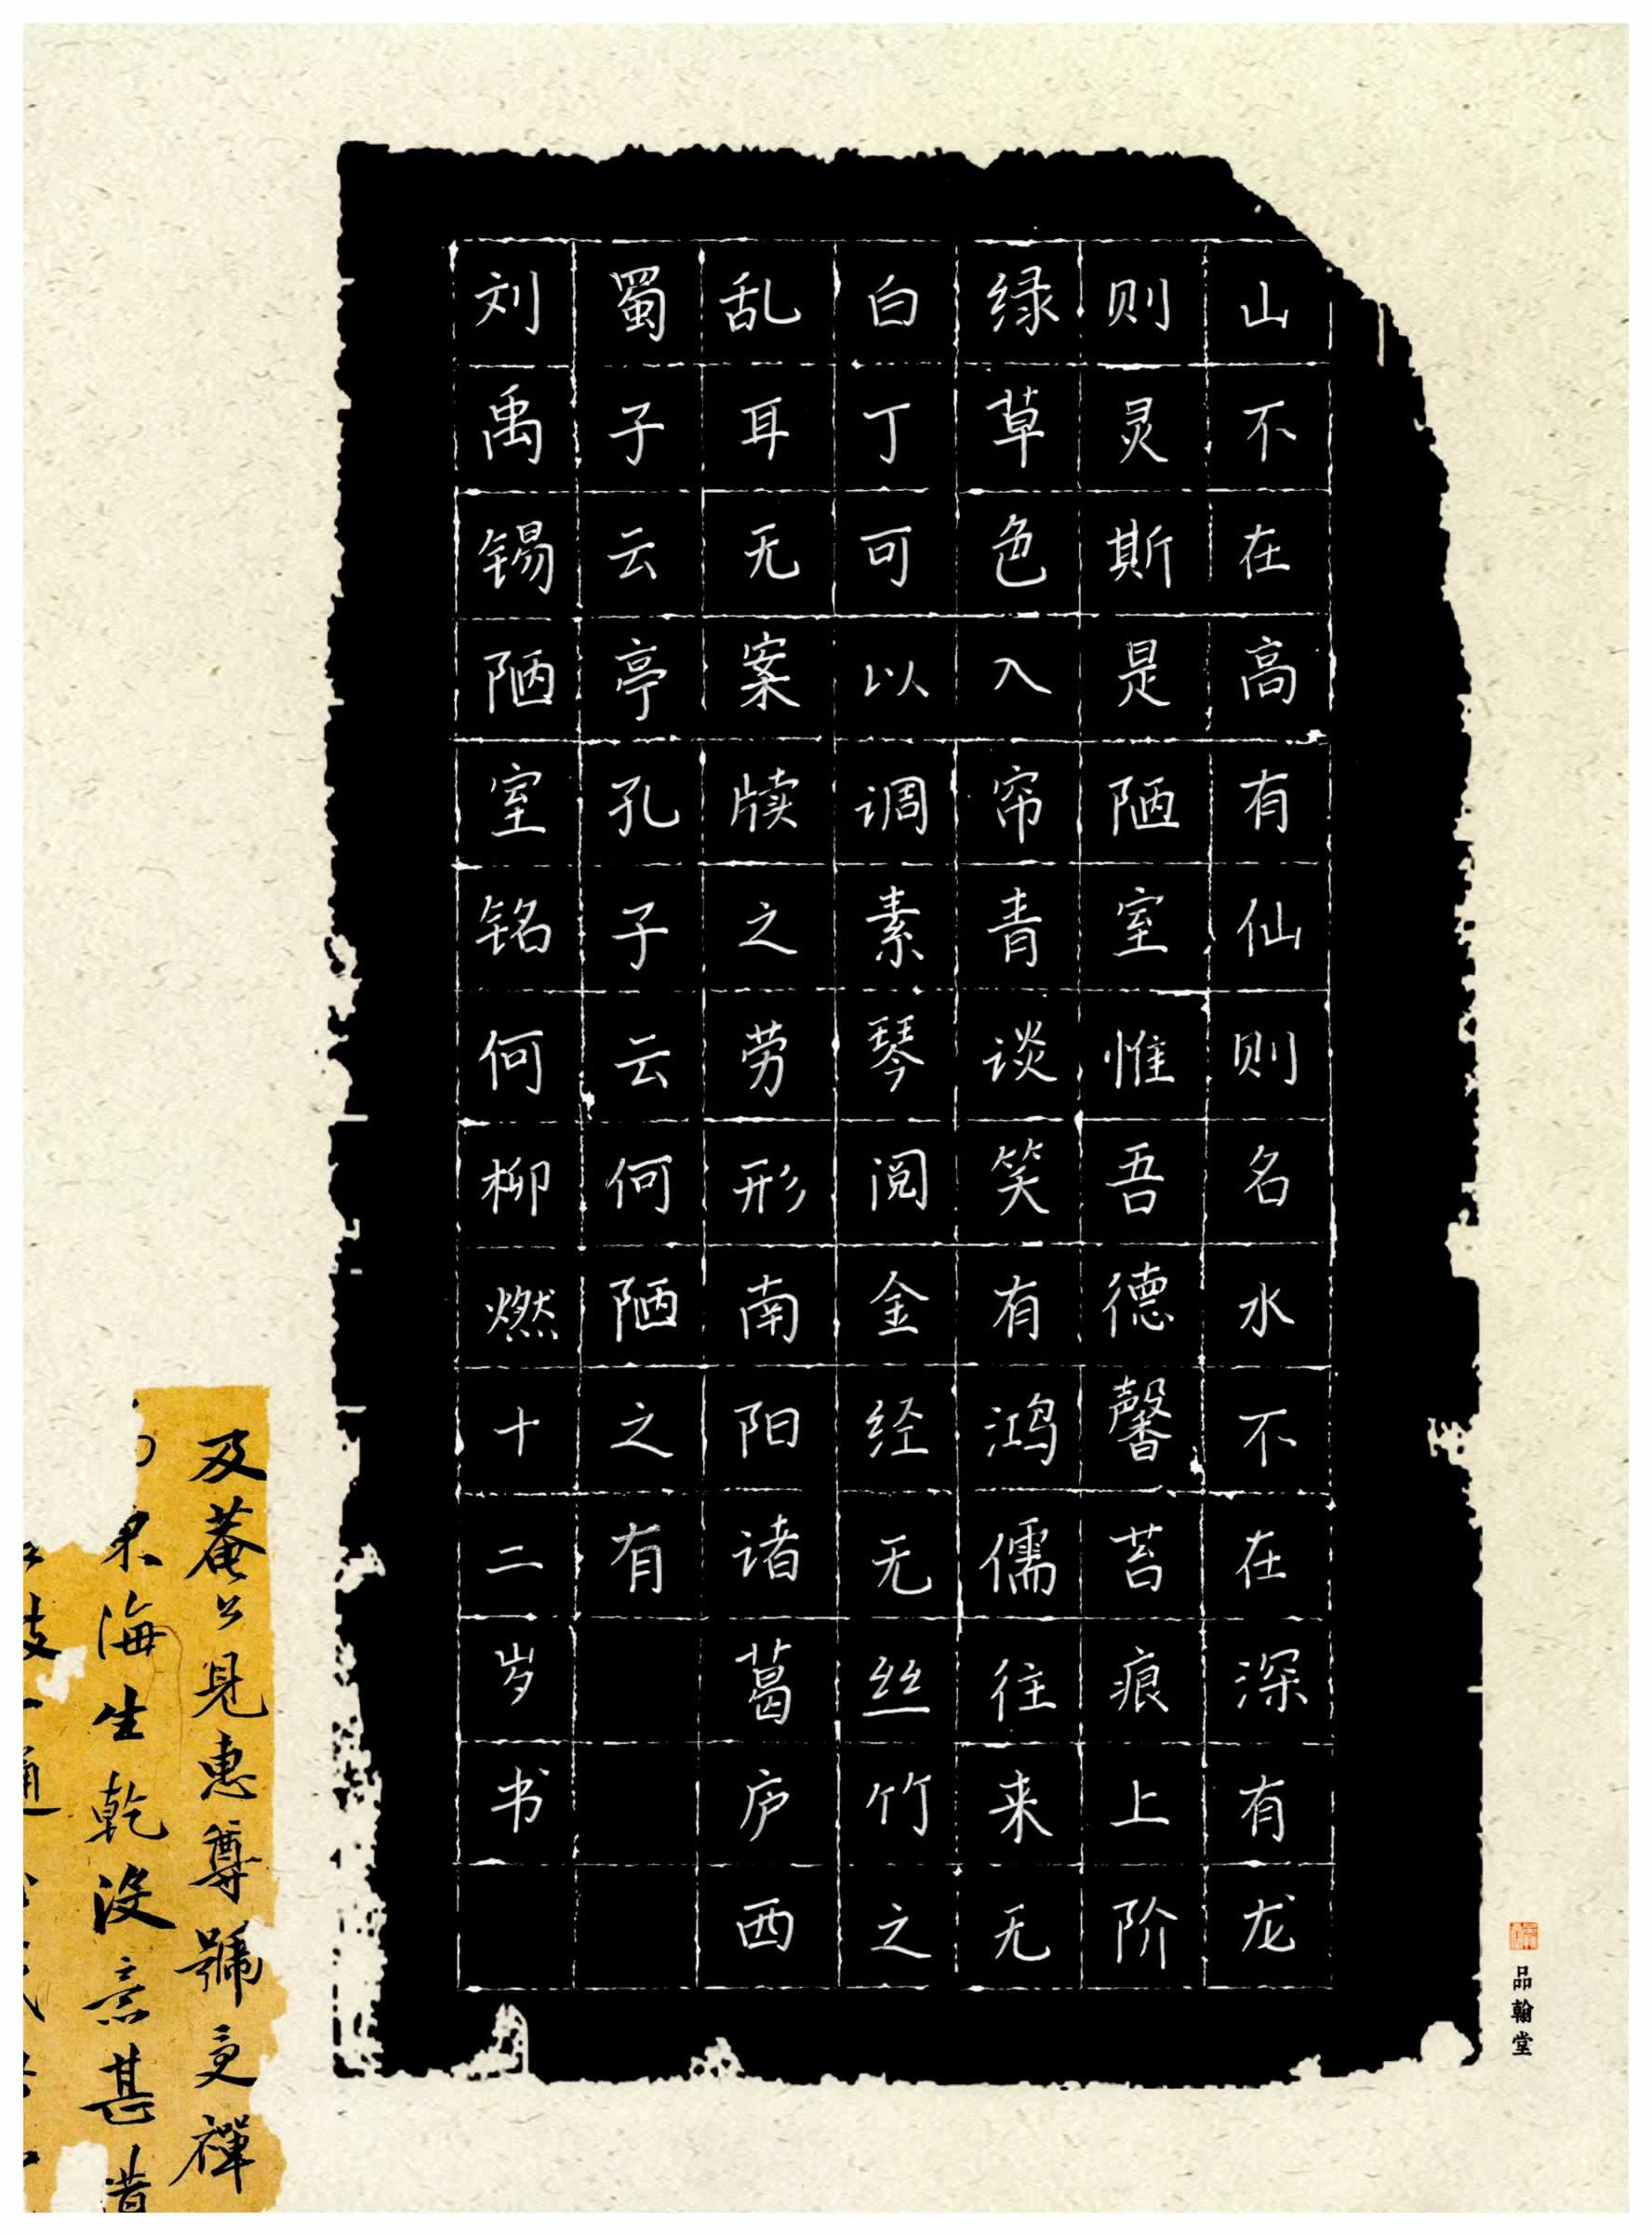 山不在高有仙则名水不在深有龙
则灵斯是陋室惟吾德馨苔痕上阶
绿草色入帘青谈笑有鸿儒往来无
白丁可以调素琴阅金经无丝竹之
乱耳无案牍之劳形南阳诸葛庐西
蜀子云亭孔子云何陋之有
刘禹锡陋室铭何柳燃十二岁书
及菴公见惠尊號更禪
海生乾没意甚
通
品翰堂